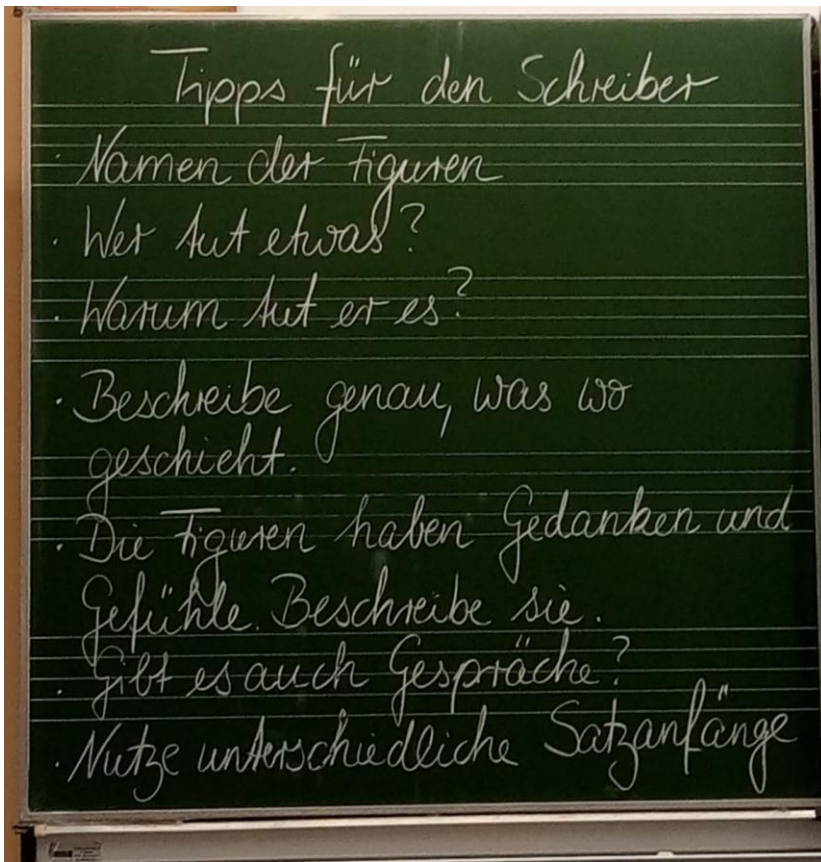 Tipps für den Schreiber
· Namen der Figuren
· Wer tut etwas?
· Warum tut er es?
· Beschreibe genau, was wo
geschieht.
· Die Figuren haben Gedanken und
Gefühle. Beschreibe sie.
· Gibt es auch Gespräche?
· Nutze unterschiedliche Satzanfänge